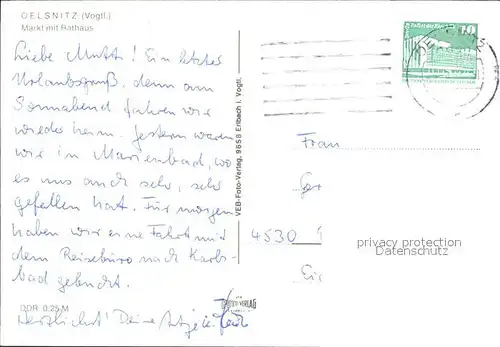 OELSNITZ (Vogtl.)
Markt mit Rathaus
Liebe Mutti! Ein letzter
Urlaubsgruß, denn am
Sonnabend fahren wir
wieder heim. Gestern waren
wir in Marienbad, wo
es uns auch sehr, sehr
gefallen hat. Für morgen
haben wir eine Fahrt mit
dem Reisebüro nach Karls-
bad gebucht.
DDR 0.25 M
Herzlichst! Deine
VEB-Foto-Verlag, 9658 Erlbach i. Vogtl.
10
Frau
4530
privacy protection
Datenschutz